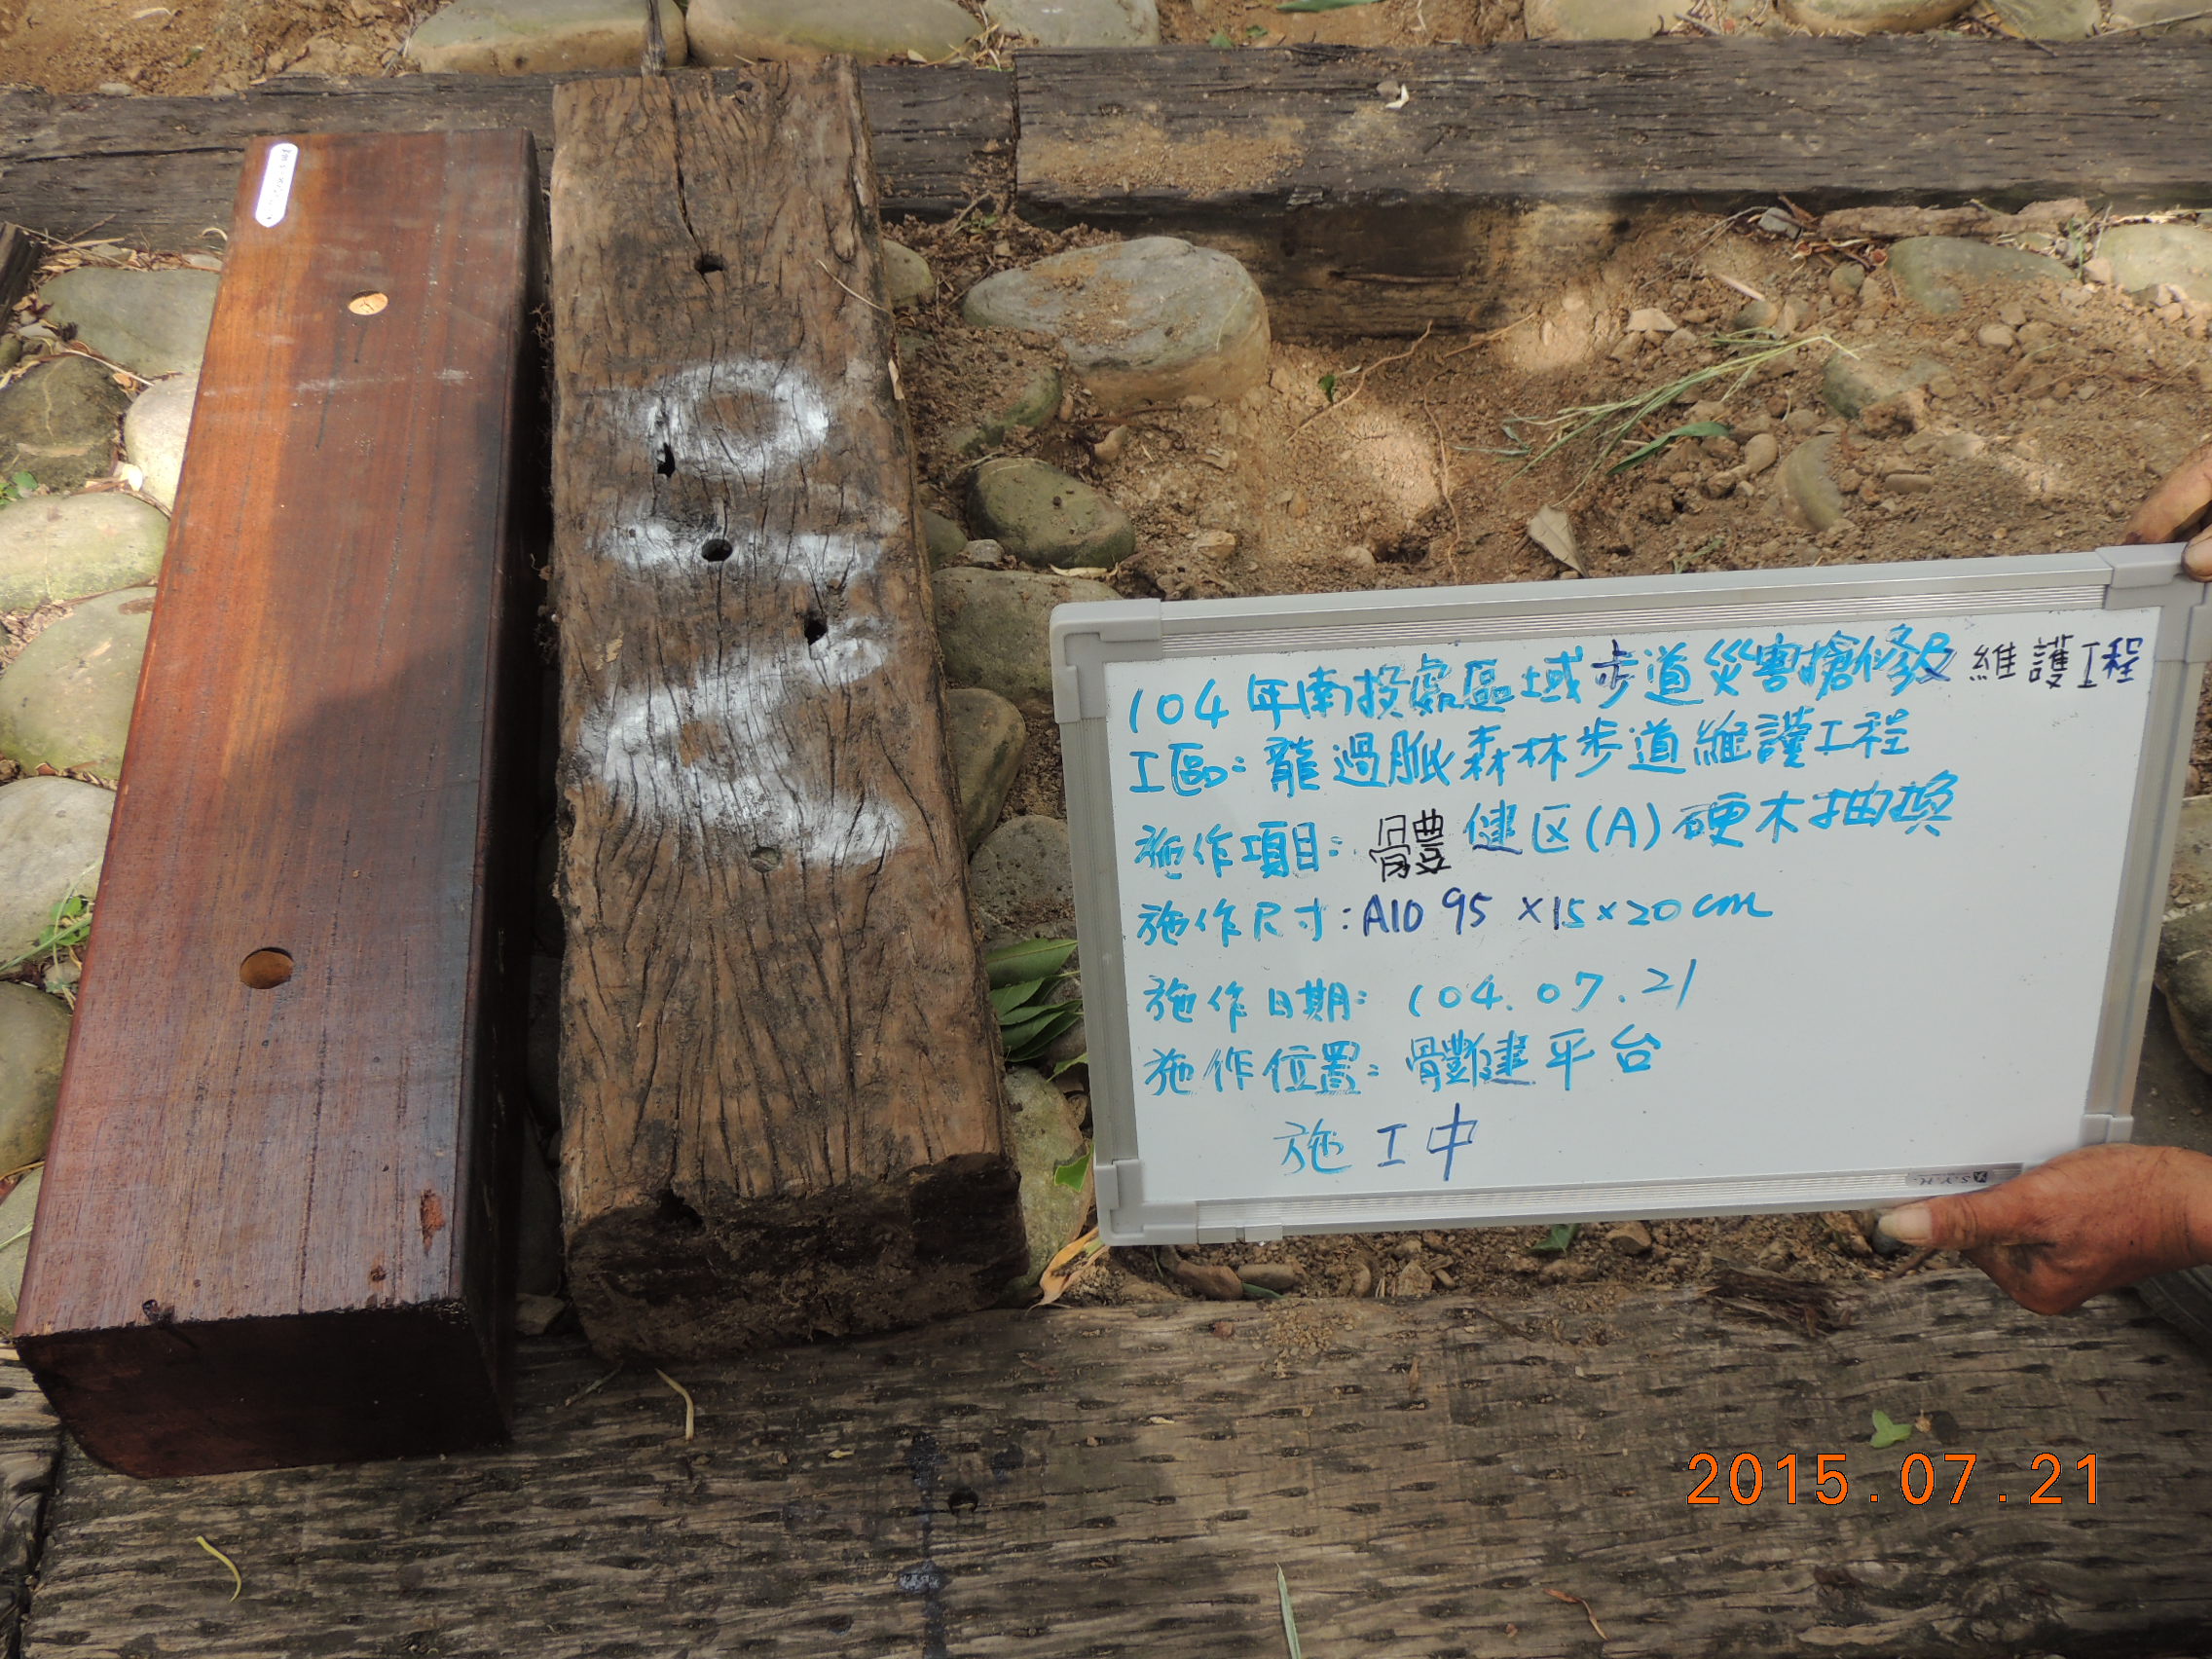 104年南投處區域步道災害搶修及維護工程
工區:龍過脈森林步道維護工程
施作項目:體健区(A)硬木抽換
施作尺寸:A10 95×15×20cm
施作日期:104.07.21
施作位置:體健平台
施工中
A10
2015.07.21